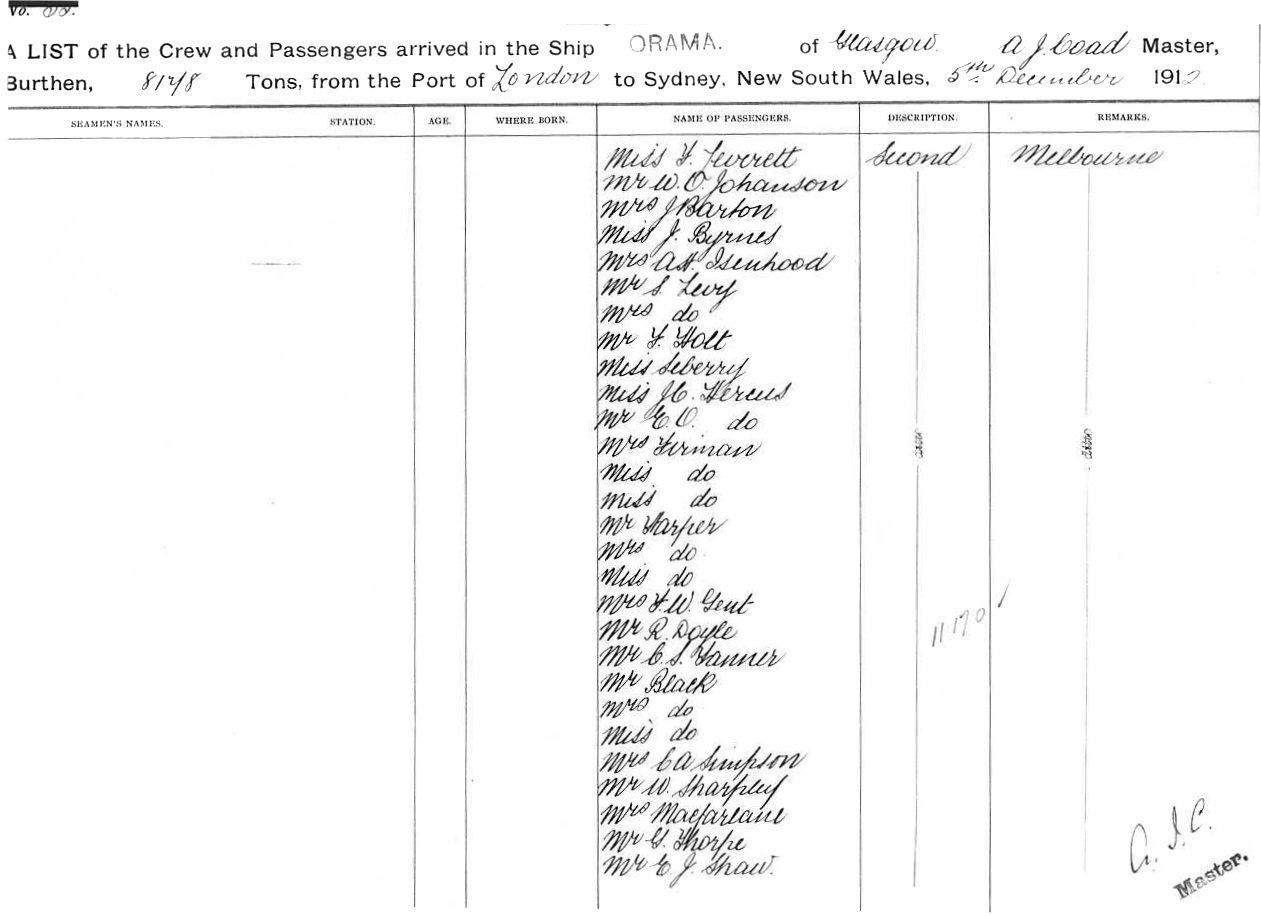 No.
A LIST of the Crew and Passengers arrived in the Ship ORAMA. of Glasgow. A J Coad Master,
Burthen, 8148 Tons, from the Port of London to Sydney, New South Wales, 5th December 1912.
SEAMEN'S NAMES. STATION. AGE. WHERE BORN. NAME OF PASSENGERS. DESCRIPTION. REMARKS.
Miss F. Leverett Second Melbourne
Mr W. O. Johanson
Mrs J Barton
Miss J. Byrnes
Mrs A H. Isenhood
Mr S. Levy
Mrs do
Mr F. Holt
Miss Seberry
Miss J C. Hercus
Mr E. O. do
Mrs Firman
Miss do
Miss do
Mr Harper
Mrs do
Miss do
Mrs F. W. Gent
Mr R. Doyle
Mr C. S. Fanner
Mr Black
Mrs do
Miss do
Mrs C A Simpson
Mr W. Sharpley
Mrs Macfarlane
Mr G. Thorpe
Mr E. J. Shaw.
11170
A. J. C.
Master.